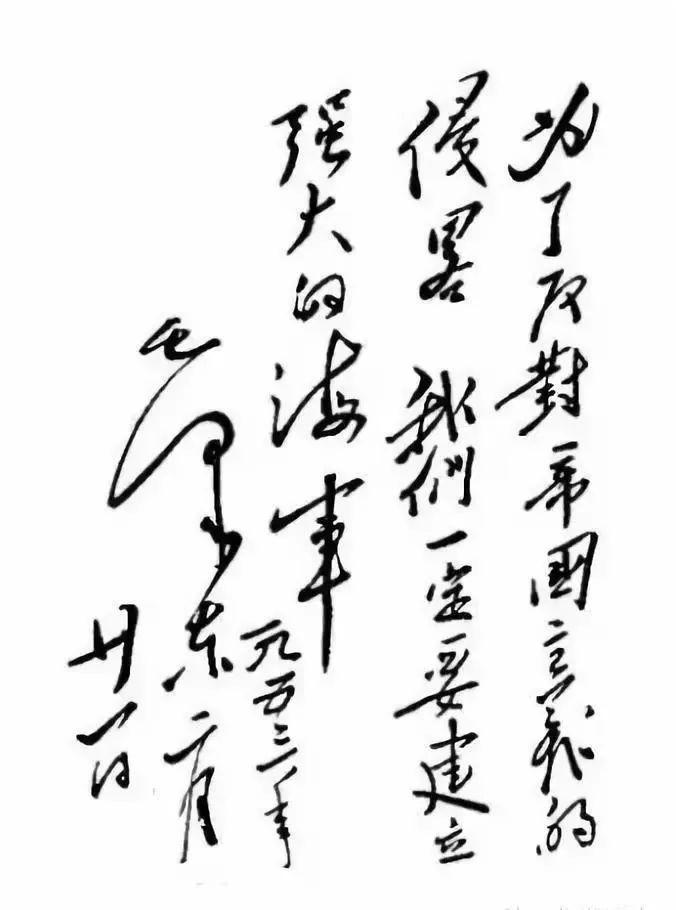 为了反對帝國主義的
侵畧 我們一定要建立
强大的海軍
一九五三年
毛澤东 二月
廿一日